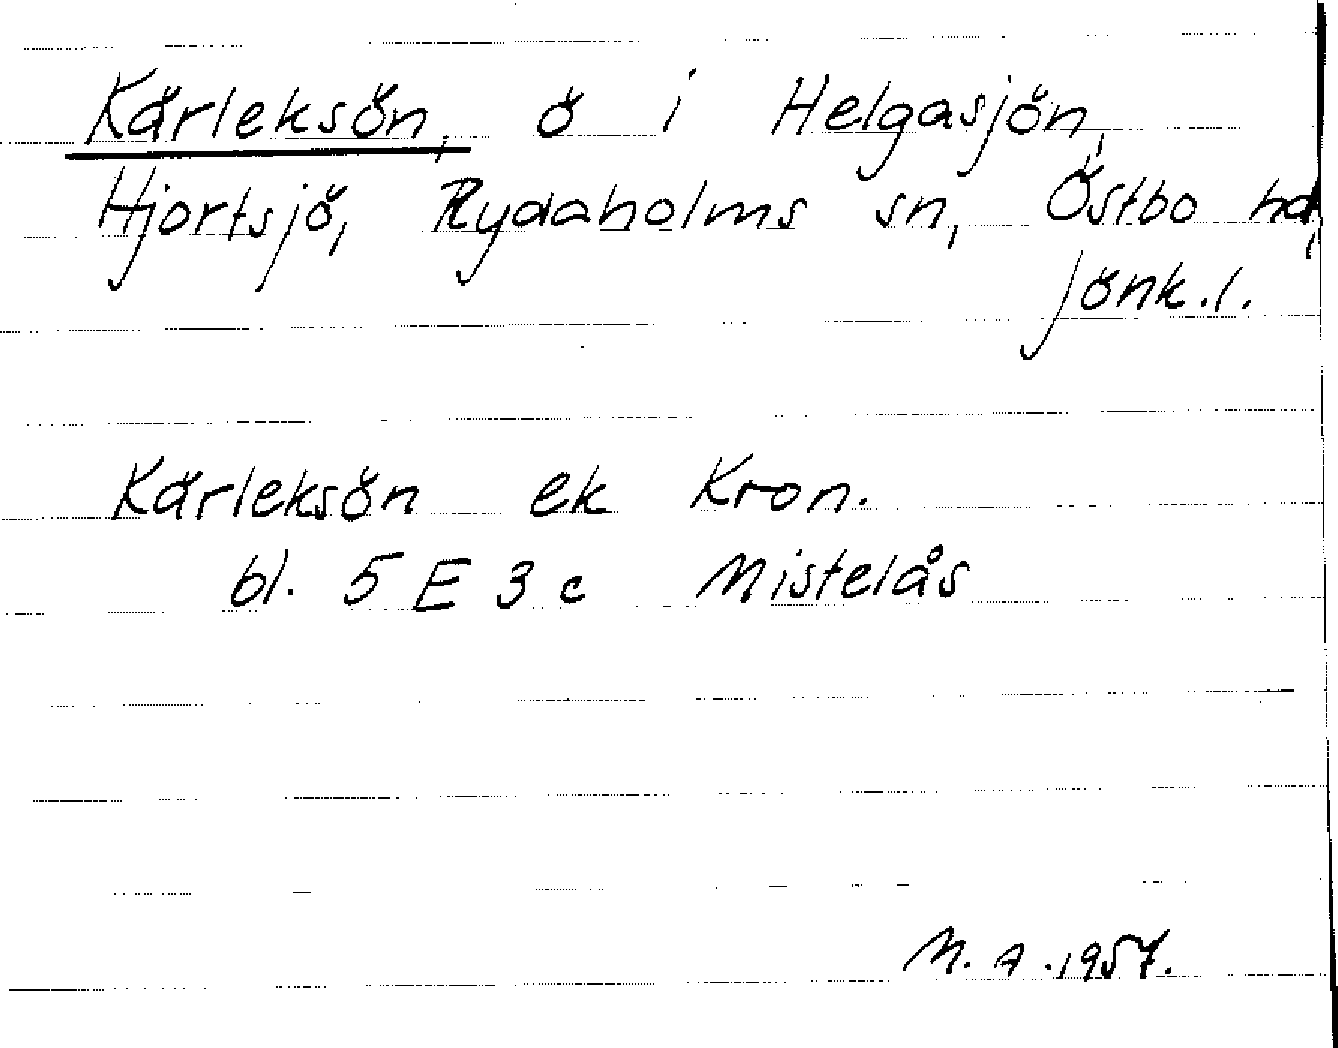 Kärleksön, ö i Helgasjön,
Hjortsjö, Rydaholms sn, Östbo hd,
Jönk.l.
Kärleksön ek Kron.
bl. 5 E 3 c Mistelås
M. A. 1957.